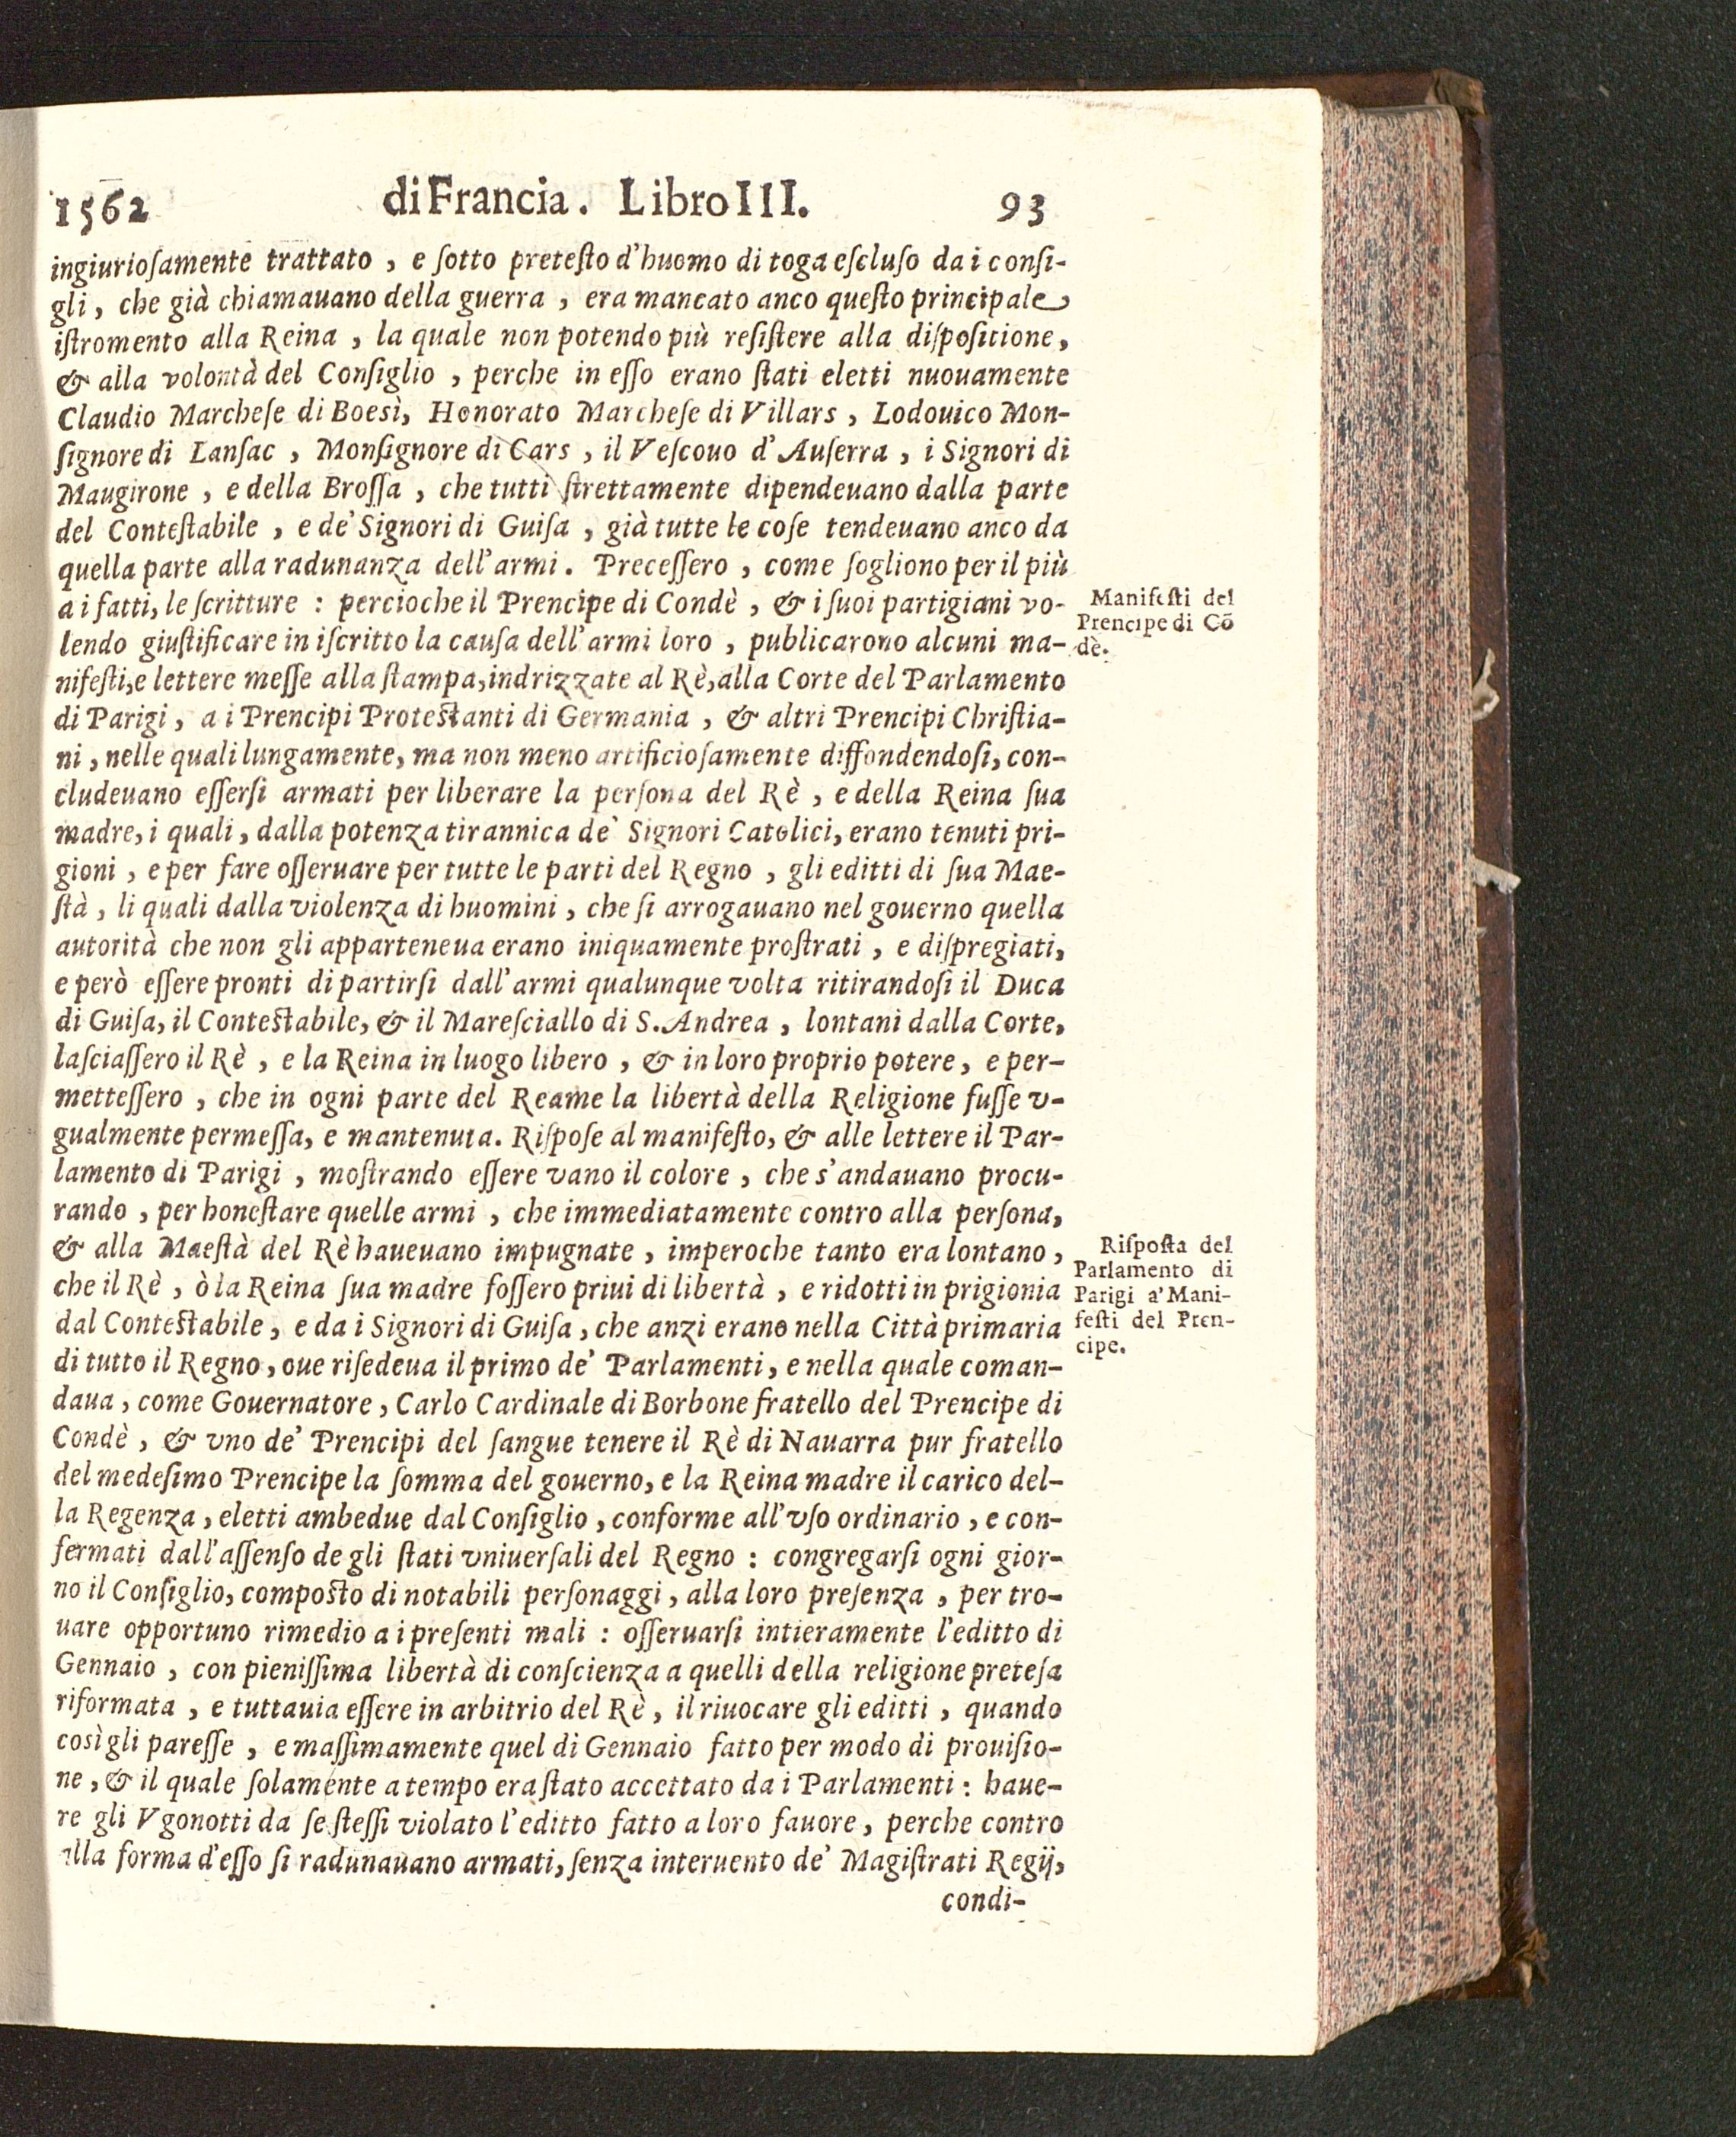 1562 di Francia. Libro III. 93
ingiurioſamente trattato, e ſotto preteſto d'huomo di toga eſcluſo da i conſi-
gli, che già chiamauano della guerra, era mancato anco queſto principale
iſtromento alla Reina, la quale non potendo più reſiſtere alla diſpoſitione,
& alla volontà del Conſiglio, perche in eſſo erano ſtati eletti nuouamente
Claudio Marcheſe di Boesì, Honorato Marcheſe di Villars, Lodouico Mon-
ſignore di Lanſac, Monſignore di Cars, il Veſcouo d'Auſerra, i Signori di
Maugirone, e della Broſſa, che tutti ſtrettamente dipendeuano dalla parte
del Conteſtabile, e de' Signori di Guiſa, già tutte le coſe tendeuano anco da
quella parte alla radunanza dell'armi. Preceſſero, come ſogliono per il più
a i fatti, le ſcritture: percioche il Prencipe di Condè, & i ſuoi partigiani vo-
lendo giuſtificare in iſcritto la cauſa dell'armi loro, publicarono alcuni ma-
nifeſti, e lettere meſſe alla ſtampa, indrizzate al Rè, alla Corte del Parlamento
di Parigi, a i Prencipi Proteſtanti di Germania, & altri Prencipi Chriſtia-
ni, nelle quali lungamente, ma non meno artificioſamente diffondendoſi, con-
cludeuano eſſerſi armati per liberare la perſona del Rè, e della Reina ſua
madre, i quali, dalla potenza tirannica de' Signori Catolici, erano tenuti pri-
gioni, e per fare oſſeruare per tutte le parti del Regno, gli editti di ſua Mae-
ſtà, li quali dalla violenza di huomini, che ſi arrogauano nel gouerno quella
autorità che non gli apparteneua erano iniquamente proſtrati, e diſpregiati,
e però eſſere pronti di partirſi dall'armi qualunque volta ritirandoſi il Duca
di Guiſa, il Conteſtabile, & il Mareſciallo di S. Andrea, lontani dalla Corte,
laſciaſſero il Rè, e la Reina in luogo libero, & in loro proprio potere, e per-
metteſſero, che in ogni parte del Reame la libertà della Religione fuſſe v-
gualmente permeſſa, e mantenuta. Riſpoſe al manifeſto, & alle lettere il Par-
lamento di Parigi, moſtrando eſſere vano il colore, che s'andauano procu-
rando, per honeſtare quelle armi, che immediatamente contro alla perſona,
& alla Maeſtà del Rè haueuano impugnate, imperoche tanto era lontano,
che il Rè, ò la Reina ſua madre foſſero priui di libertà, e ridotti in prigionia
dal Conteſtabile, e da i Signori di Guiſa, che anzi erano nella Città primaria
di tutto il Regno, oue riſedeua il primo de' Parlamenti, e nella quale coman-
daua, come Gouernatore, Carlo Cardinale di Borbone fratello del Prencipe di
Condè, & vno de' Prencipi del ſangue tenere il Rè di Nauarra pur fratello
del medeſimo Prencipe la ſomma del gouerno, e la Reina madre il carico del-
la Regenza, eletti ambedue dal Conſiglio, conforme all'vſo ordinario, e con-
fermati dall'aſſenſo de gli ſtati vniuerſali del Regno: congregarſi ogni gior-
no il Conſiglio, compoſto di notabili perſonaggi, alla loro preſenza, per tro-
uare opportuno rimedio a i preſenti mali: oſſeruarſi intieramente l'editto di
Gennaio, con pieniſſima libertà di conſcienza a quelli della religione preteſa
riformata, e tuttauia eſſere in arbitrio del Rè, il riuocare gli editti, quando
così gli pareſſe, e maſſimamente quel di Gennaio fatto per modo di prouiſio-
ne, & il quale ſolamente a tempo era ſtato accettato da i Parlamenti: haue-
re gli Vgonotti da ſe ſteſſi violato l'editto fatto a loro fauore, perche contro
alla forma d'eſſo ſi radunauano armati, ſenza interuento de' Magiſtrati Regij,
condi-
Manifeſti del
Prencipe di Cō
dè.
Riſpoſta del
Parlamento di
Parigi a' Mani-
feſti del Pren-
cipe.